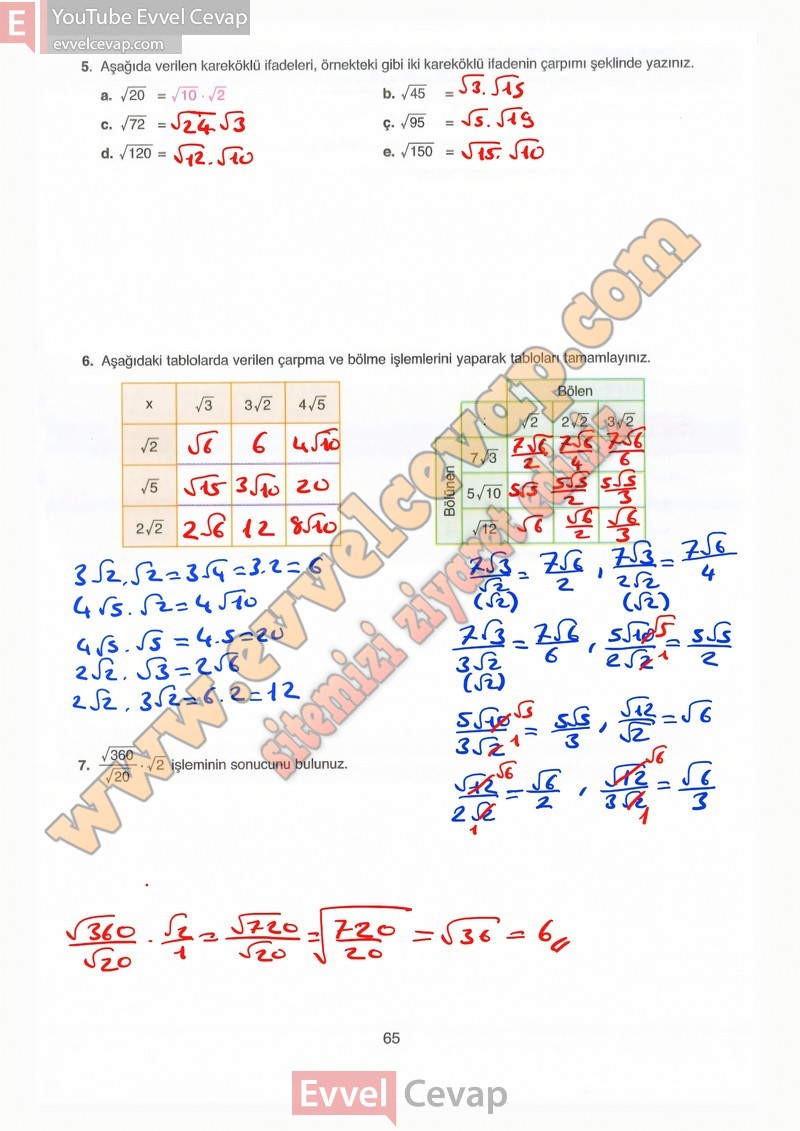 E YouTube Evvel Cevap
evvelcevap.com
5. Aşağıda verilen kareköklü ifadeleri, örnekteki gibi iki kareköklü ifadenin çarpımı şeklinde yazınız.
a. √20 = √10 · √2
b. √45 = √3.√15
c. √72 = √24.√3
ç. √95 = √5.√19
d. √120 = √12.√10
e. √150 = √15.√10
www.evvelcevap.com
sitemizi ziyaret ediniz
6. Aşağıdaki tablolarda verilen çarpma ve bölme işlemlerini yaparak tabloları tamamlayınız.
x √3 3√2 4√5
√2 √6 6 4√10
√5 √15 3√10 20
2√2 2√6 12 8√10
Bölen
: √2 2√2 3√2
Bölünen
7√3 7√6/2 7√6/4 7√6/6
5√10 5√5 5√5/2 5√5/3
√12 √6 √6/2 √6/3
3√2.√2=3√4=3.2=6
4√5.√2=4√10
4√5.√5=4.5=20
2√2.√3=2√6
2√2.3√2=6.2=12
7√3/√2 = 7√6/2 , 7√3/2√2 = 7√6/4
(√2) (√2)
7√3/3√2 = 7√6/6 , 5√10/2√2 √5 1 = 5√5/2
(√2)
5√10/3√2 √5 1 = 5√5/3 , √12/√2 = √6
√12/2√2 √6 1 = √6/2 , √12/3√2 √6 1 = √6/3
7. √360/√20 · √2 işleminin sonucunu bulunuz.
√360/√20 . √2/1 = √720/√20 = √(720/20) = √36 = 6//
65
Evvel Cevap